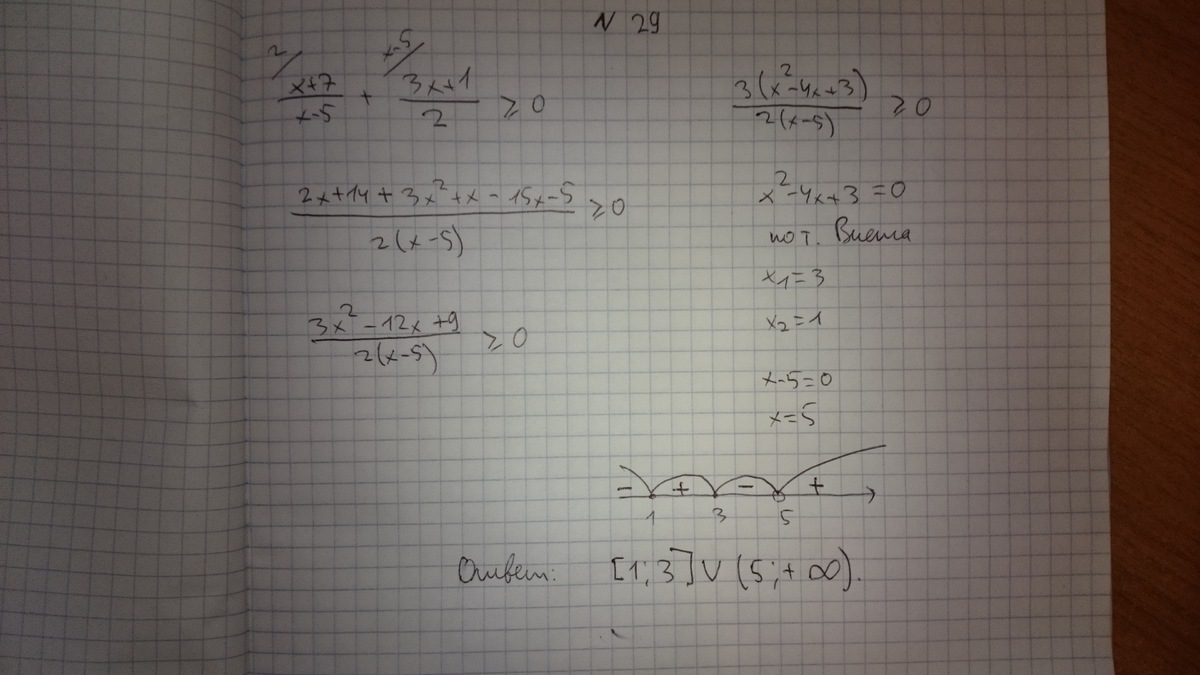 N 29
2/ x-5/
(x+7)/(x-5) + (3x+1)/2 ≥ 0
(2x+14+3x²+x-15x-5)/(2(x-5)) ≥ 0
(3x²-12x+9)/(2(x-5)) ≥ 0
(3(x²-4x+3))/(2(x-5)) ≥ 0
x²-4x+3=0
по т. Виета
x₁=3
x₂=1
x-5=0
x=5
- + - +
1 3 5
Ответ: [1;3]∪(5;+∞).